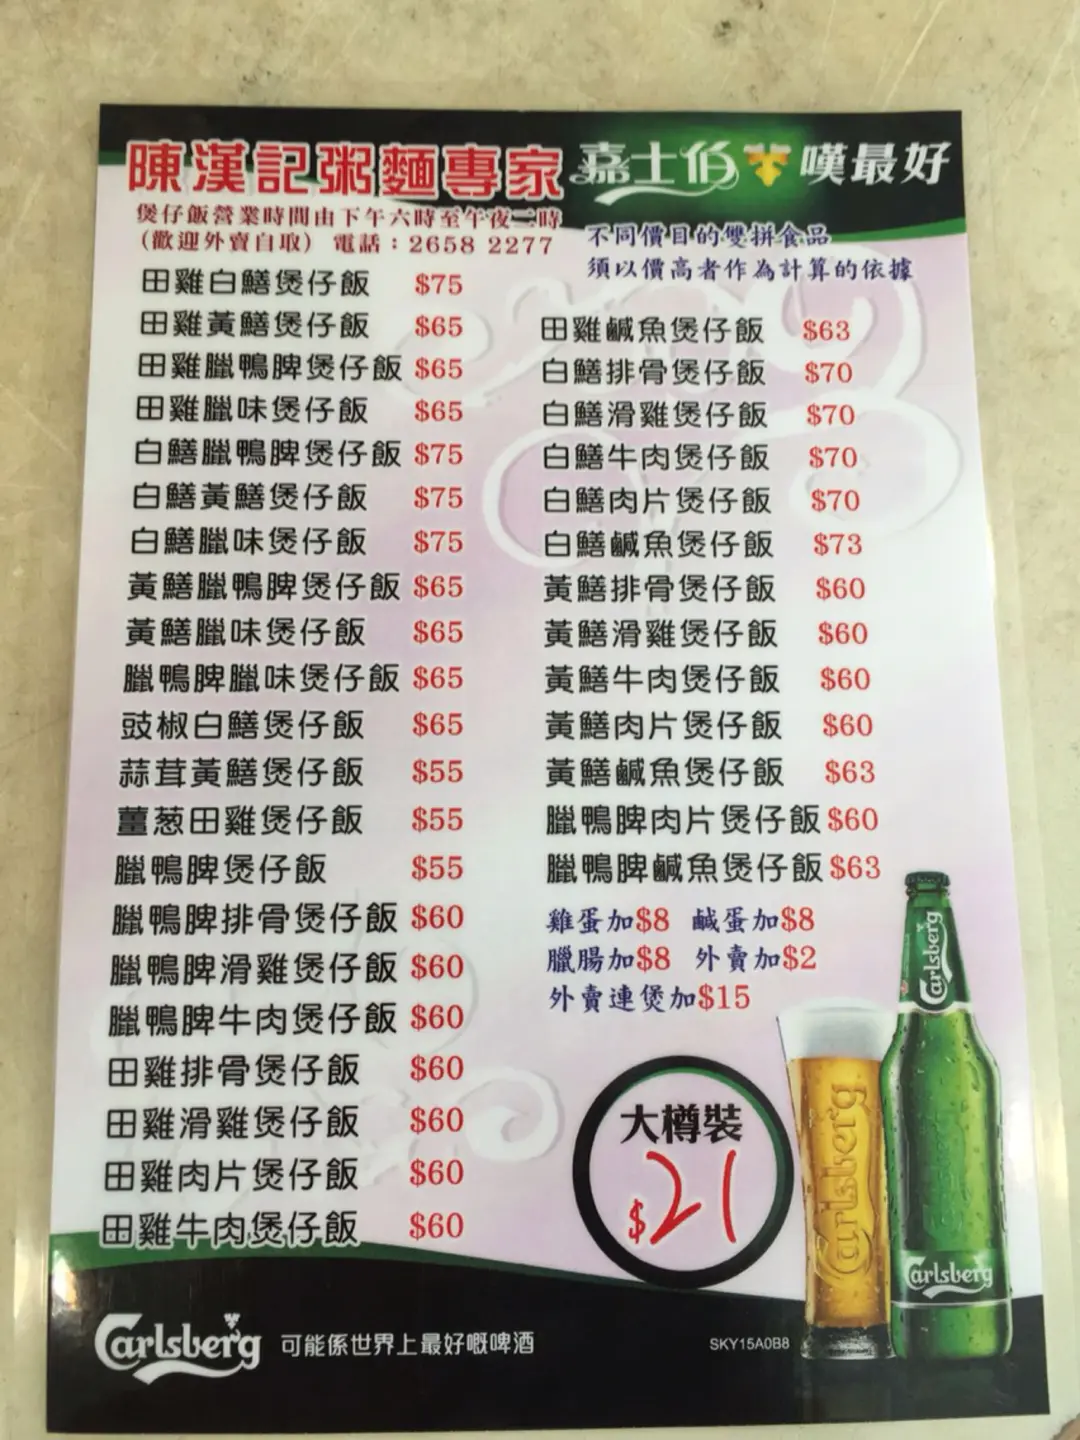 陳漢記粥麵專家
嘉士伯 嘆最好
煲仔飯營業時間由下午六時至午夜二時
(歡迎外賣自取) 電話：2658 2277
不同價目的雙拼食品
須以價高者作為計算的依據
田雞白鱔煲仔飯 $75
田雞黃鱔煲仔飯 $65
田雞臘鴨脾煲仔飯 $65
田雞臘味煲仔飯 $65
白鱔臘鴨脾煲仔飯 $75
白鱔黃鱔煲仔飯 $75
白鱔臘味煲仔飯 $75
黃鱔臘鴨脾煲仔飯 $65
黃鱔臘味煲仔飯 $65
臘鴨脾臘味煲仔飯 $65
豉椒白鱔煲仔飯 $65
蒜茸黃鱔煲仔飯 $55
薑葱田雞煲仔飯 $55
臘鴨脾煲仔飯 $55
臘鴨脾排骨煲仔飯 $60
臘鴨脾滑雞煲仔飯 $60
臘鴨脾牛肉煲仔飯 $60
田雞排骨煲仔飯 $60
田雞滑雞煲仔飯 $60
田雞肉片煲仔飯 $60
田雞牛肉煲仔飯 $60
田雞鹹魚煲仔飯 $63
白鱔排骨煲仔飯 $70
白鱔滑雞煲仔飯 $70
白鱔牛肉煲仔飯 $70
白鱔肉片煲仔飯 $70
白鱔鹹魚煲仔飯 $73
黃鱔排骨煲仔飯 $60
黃鱔滑雞煲仔飯 $60
黃鱔牛肉煲仔飯 $60
黃鱔肉片煲仔飯 $60
黃鱔鹹魚煲仔飯 $63
臘鴨脾肉片煲仔飯 $60
臘鴨脾鹹魚煲仔飯 $63
雞蛋加$8 鹹蛋加$8
臘腸加$8 外賣加$2
外賣連煲加$15
大樽裝
Carlsberg
Carlsberg
Carlsberg
Carlsberg 可能係世界上最好嘅啤酒
SKY15A0B8